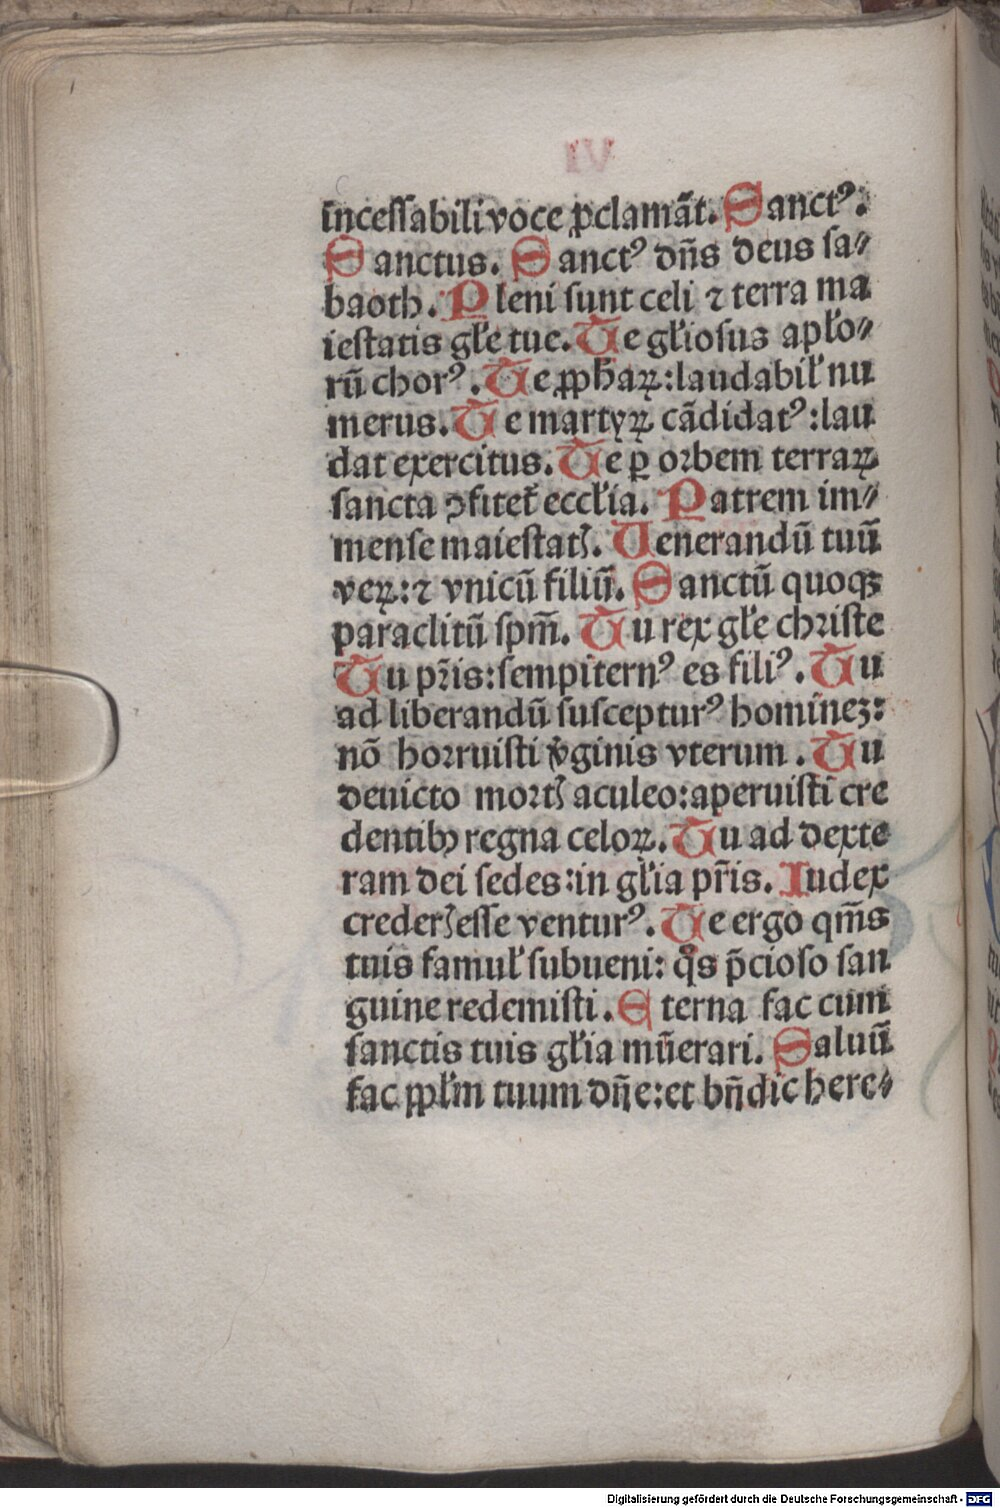 incessabili voce ꝓclamāt. Sanctꝰ.
Sanctus. Sanctꝰ dn̄s deus sa⸗
baoth. Pleni sunt celi ⁊ terra ma
iestatis gl̄e tue. Te gl̄iosus apl̄o⸗
rū chorꝰ. Te ꝓph̄aꝝ: laudabil̄ nu
merus. Te martyꝝ cādidatꝰ: lau
dat exercitus. Te ꝑ orbem terraꝝ
sancta ꝯfitet᷑ eccl̄ia. Patrem im⸗
mense maiestatꝭ. Venerandū tuū
veꝝ: ⁊ vnicū filiū. Sanctū quoqꝫ
paraclitū spm̄. Tu rex gl̄e christe
Tu pr̄is: sempiternꝰ es filiꝰ. Tu
ad liberandū suscepturꝰ hominēꝫ:
nō horruisti v̄ginis vterum. Tu
deuicto mortꝭ aculeo: aperuisti cre
dentibꝰ regna celoꝝ. Tu ad dexte
ram dei sedes: in gl̄ia pr̄is. Iudex
crederꝭ esse venturꝰ. Te ergo qm̄s
tuis famul̄ subueni: qͦs p̄cioso san
guine redemisti. Eterna fac cum
sanctis tuis gl̄ia mūerari. Saluū
fac ppl̄m tuum dn̄e: et bn̄dic here⸗
Digitalisierung gefördert durch die Deutsche Forschungsgemeinschaft - DFG